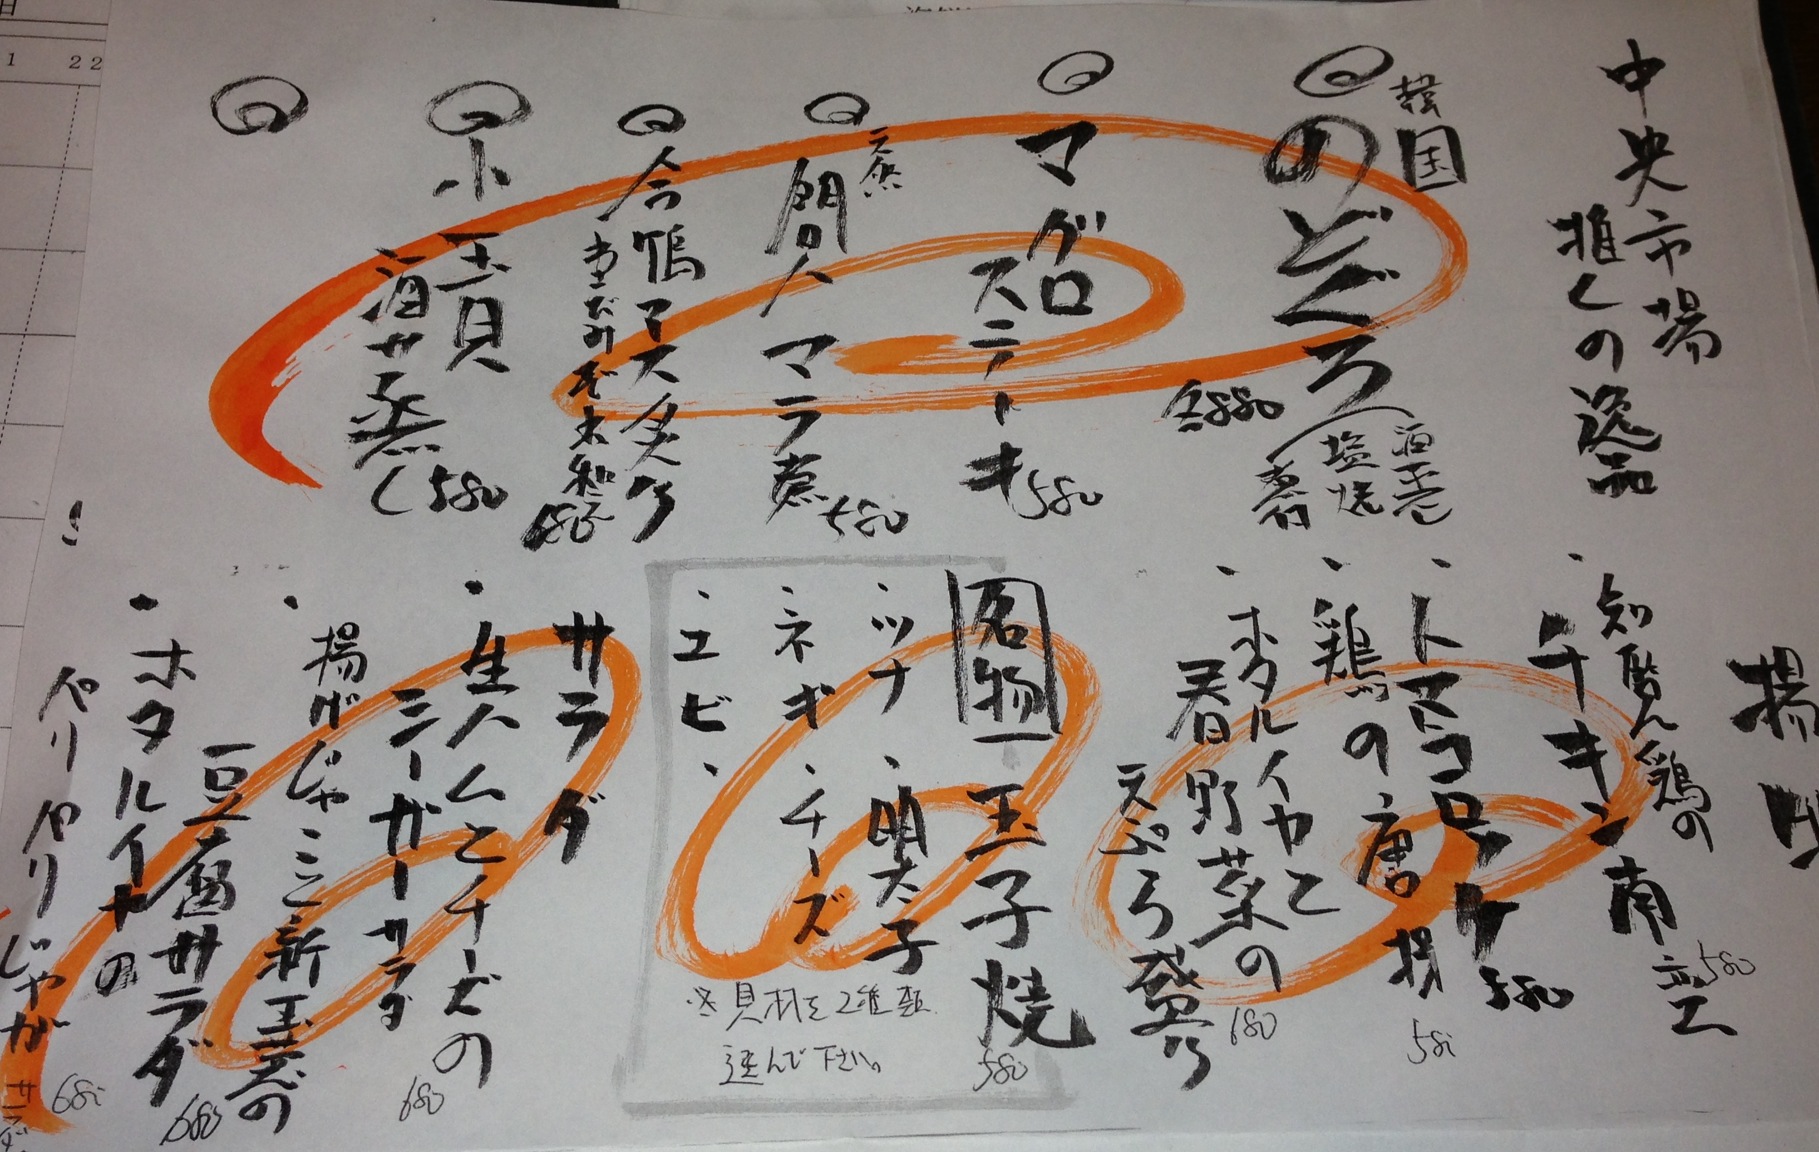 中央市場
推しの逸品
韓国
のどぐろ
酒蒸し
塩焼
煮付
マグロ
ステーキ 580
天然
朝〆
小玉貝
酒蒸し 580
揚
知覧鶏の
・チキン南蛮 580
・トマトコロッケ 580
・鶏の唐揚 580
・ホタルイカと
春野菜の
天ぷら盛り 680
名物 玉子焼 580
・ツナ ・明太子
・ネギ ・チーズ
・エビ ・
※具材を2種類
選んで下さい。
サラダ
・生ハムとチーズの
シーザーサラダ 680
・揚げじゃこと新玉葱の
豆腐サラダ 680
・ホタルイカの
パリパリじゃが
サラダ 680